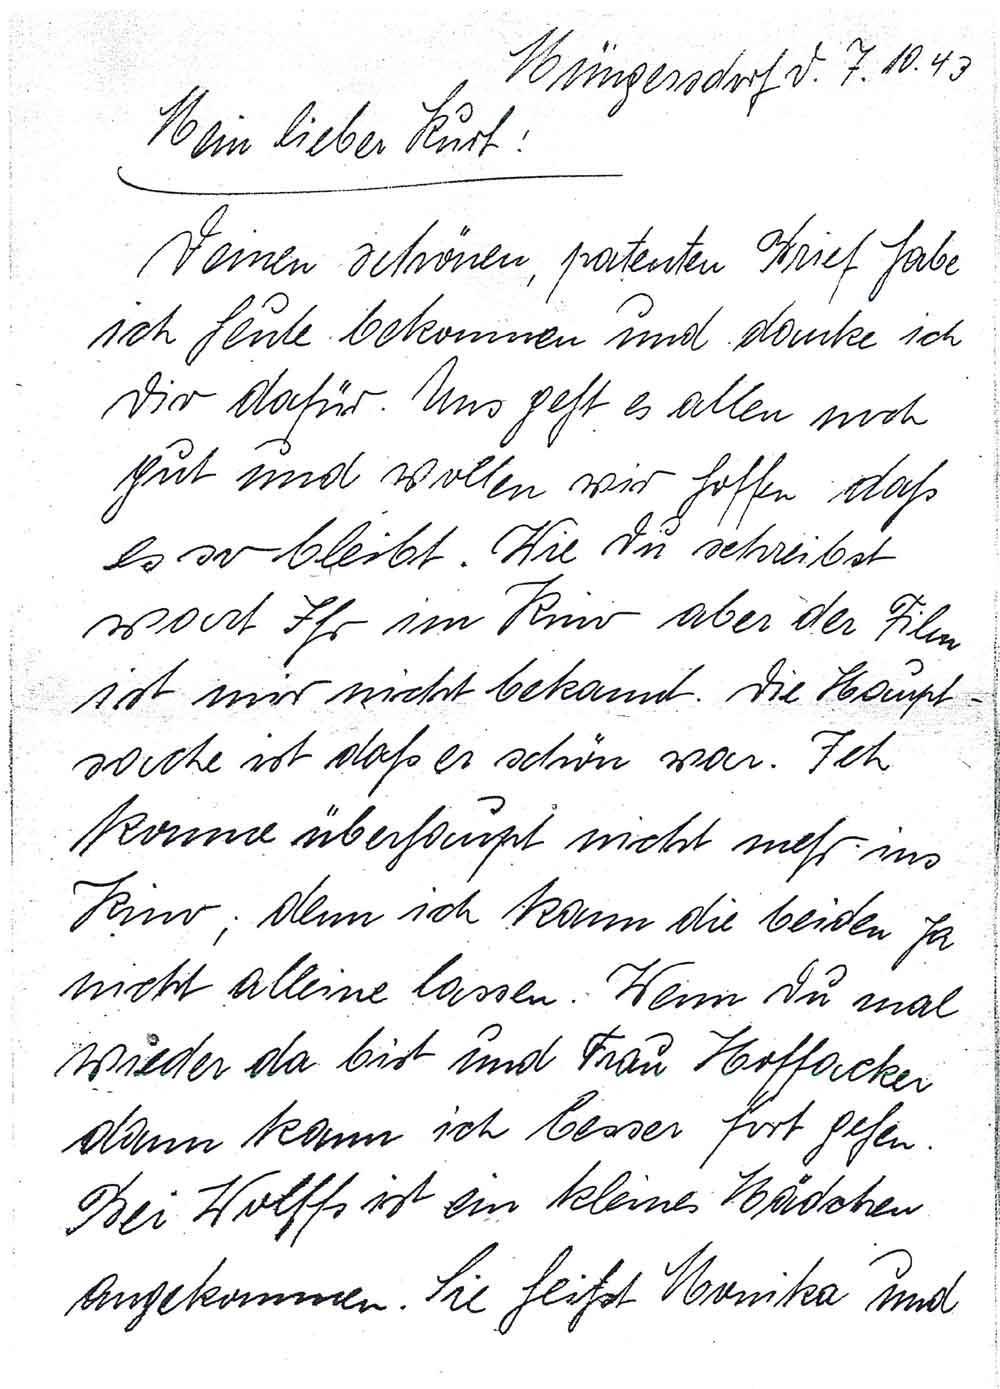 Müngersdorf d. 7.10.43
Mein lieber Kurt!
Deinen schönen, patenten Brief habe
ich heute bekommen und danke ich
Dir dafür. Uns geht es allen noch
gut und wollen wir hoffen daß
es so bleibt. Wie Du schreibst
wart Ihr im Kino aber der Film
ist mir nicht bekannt. Die Haupt-
sache ist daß er schön war. Ich
komme überhaupt nicht mehr ins
Kino, denn ich kann die beiden ja
nicht alleine lassen. Wenn Du mal
wieder da bist und Frau Hoffacker
dann kann ich besser fort gehen.
Bei Wolffs ist ein kleines Mädchen
angekommen. Sie heißt Monika und